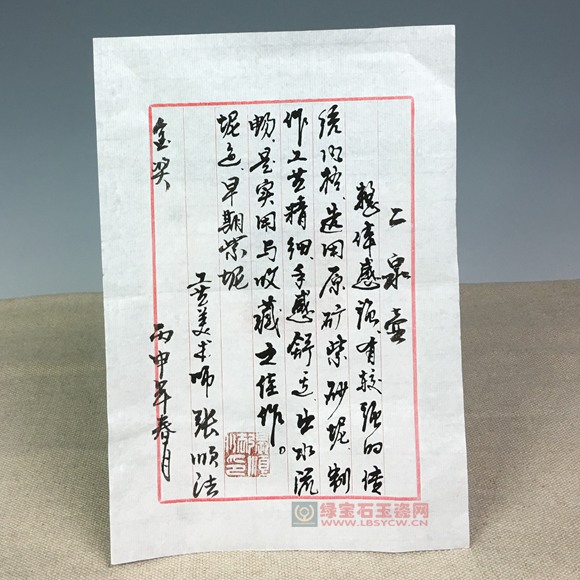 二泉壶
整体感强,有较强的传
统风格,选用原矿紫砂坭,制
作工艺精细,手感舒适,出水流
畅,是实用与收藏之佳作。
坭色:早期紫坭
工艺美术师张顺法
金奖 丙申年春月
绿宝石玉瓷网
WWW.LBSYCW.CN